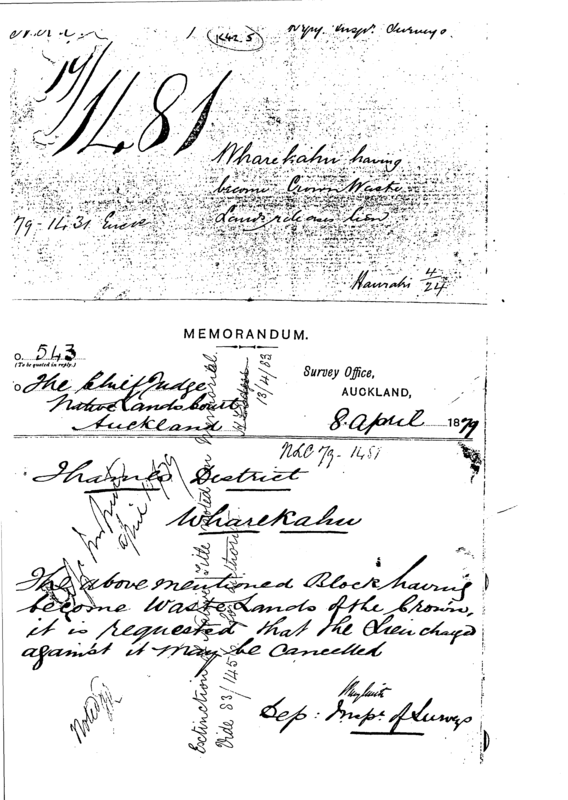 K42.5
Depy. Insp. Surveys.
79/1481
Wharekahu having
become Crown Waste
Lands release lien
79-1431
Hauraki 4/24
MEMORANDUM.
o. 543
(To be quoted in reply.)
The Chief Judge
Native Lands Court
Auckland
Survey Office,
AUCKLAND,
8. April 1879
13/4/83
NLC 79-1481
Thames District
Wharekahu
The above mentioned Block having
become Waste Lands of the Crown,
it is requested that the Lien charged
against it may be cancelled
Dep: Inspr. of Surveys
Noted
Extinction of Native Title noted on Memorial
Vide 83/145 for authority